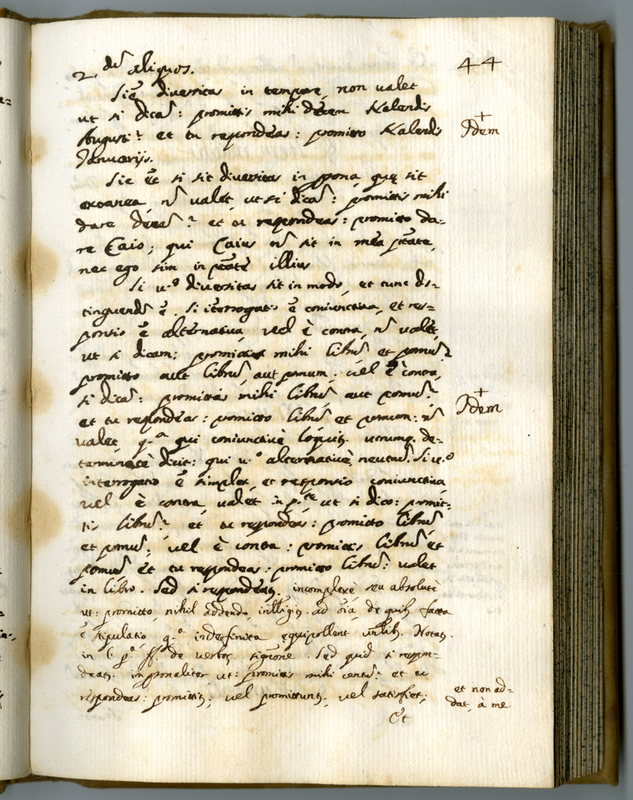 44
2. de aliquos.
Sic diversitas in tempore, non valet
ut si dicā: promittis mihi decem Kalendis
Augusti? et tu respondeas: promitto Kalendis
Januarijs.
Idem
Sic ē si sit diversitas in psona, quę sit
extranea, nō valet, ut si dicā: promittis mihi
dare decē? et tu respondeas: promitto da-
re Caio; qui Caius nō sit in mea ptate,
nec ego sim in ptate illius
Si vº diversitas sit in modo, et tunc dis-
tinguendū ē. si iterrogatº ē coniunctiva, et res-
ponsio ē alternativa, vel è contra, nō valet,
ut si dicam: promittis mihi librū et pomū?
promitto aut librū, aut pomum. vel è contra,
si dicā: promittis mihi librū aut pomū?
Idem
et tu respondeas: promitto librū et pomum: nō
valet q.ª qui coniunctivè loquitʒ utrumqʒ de-
terminatè dicit: qui v.º alternativè neutrū. Si v.º
interrogatio ē simplex, et responsio coniunctiva
vel è contra, valet in p.te ut si dico: promit-
tis librū? et tu respondeas: promitto librū
et pomū; vel è contra: promittis librū et
pomū et tu respondeas: promitto librū: valet
in libro. Sed si respondeas, incomplexè seu absolutè
ut: promitto, nihil addendo, intelligitʒ ad oīa, de quibʒ facta
ē stipulatio q.ª indefinita equipollent
in l. de verboʒ signone. Sed quid si respon-
deatʒ impsonaliter ut: promittis mihi centū? et tu
respondeas: promittitʒ; vel promittuntʒ, vel satisfiet;
et non ad-
dat, à me
Et